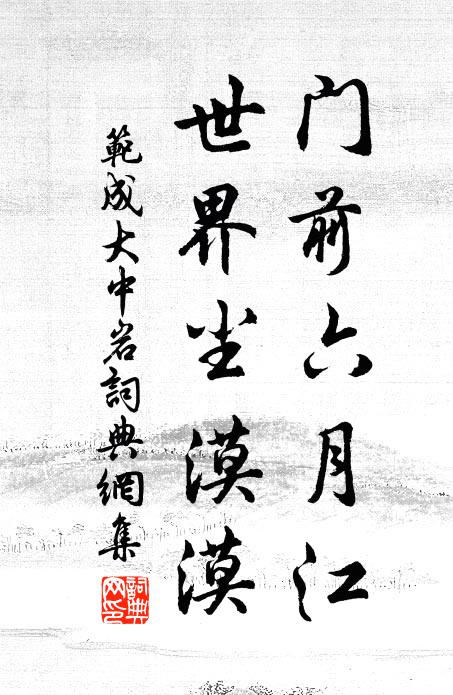 门前六月江
世界尘漠漠
範成大中岩詞典網集
詞典网印